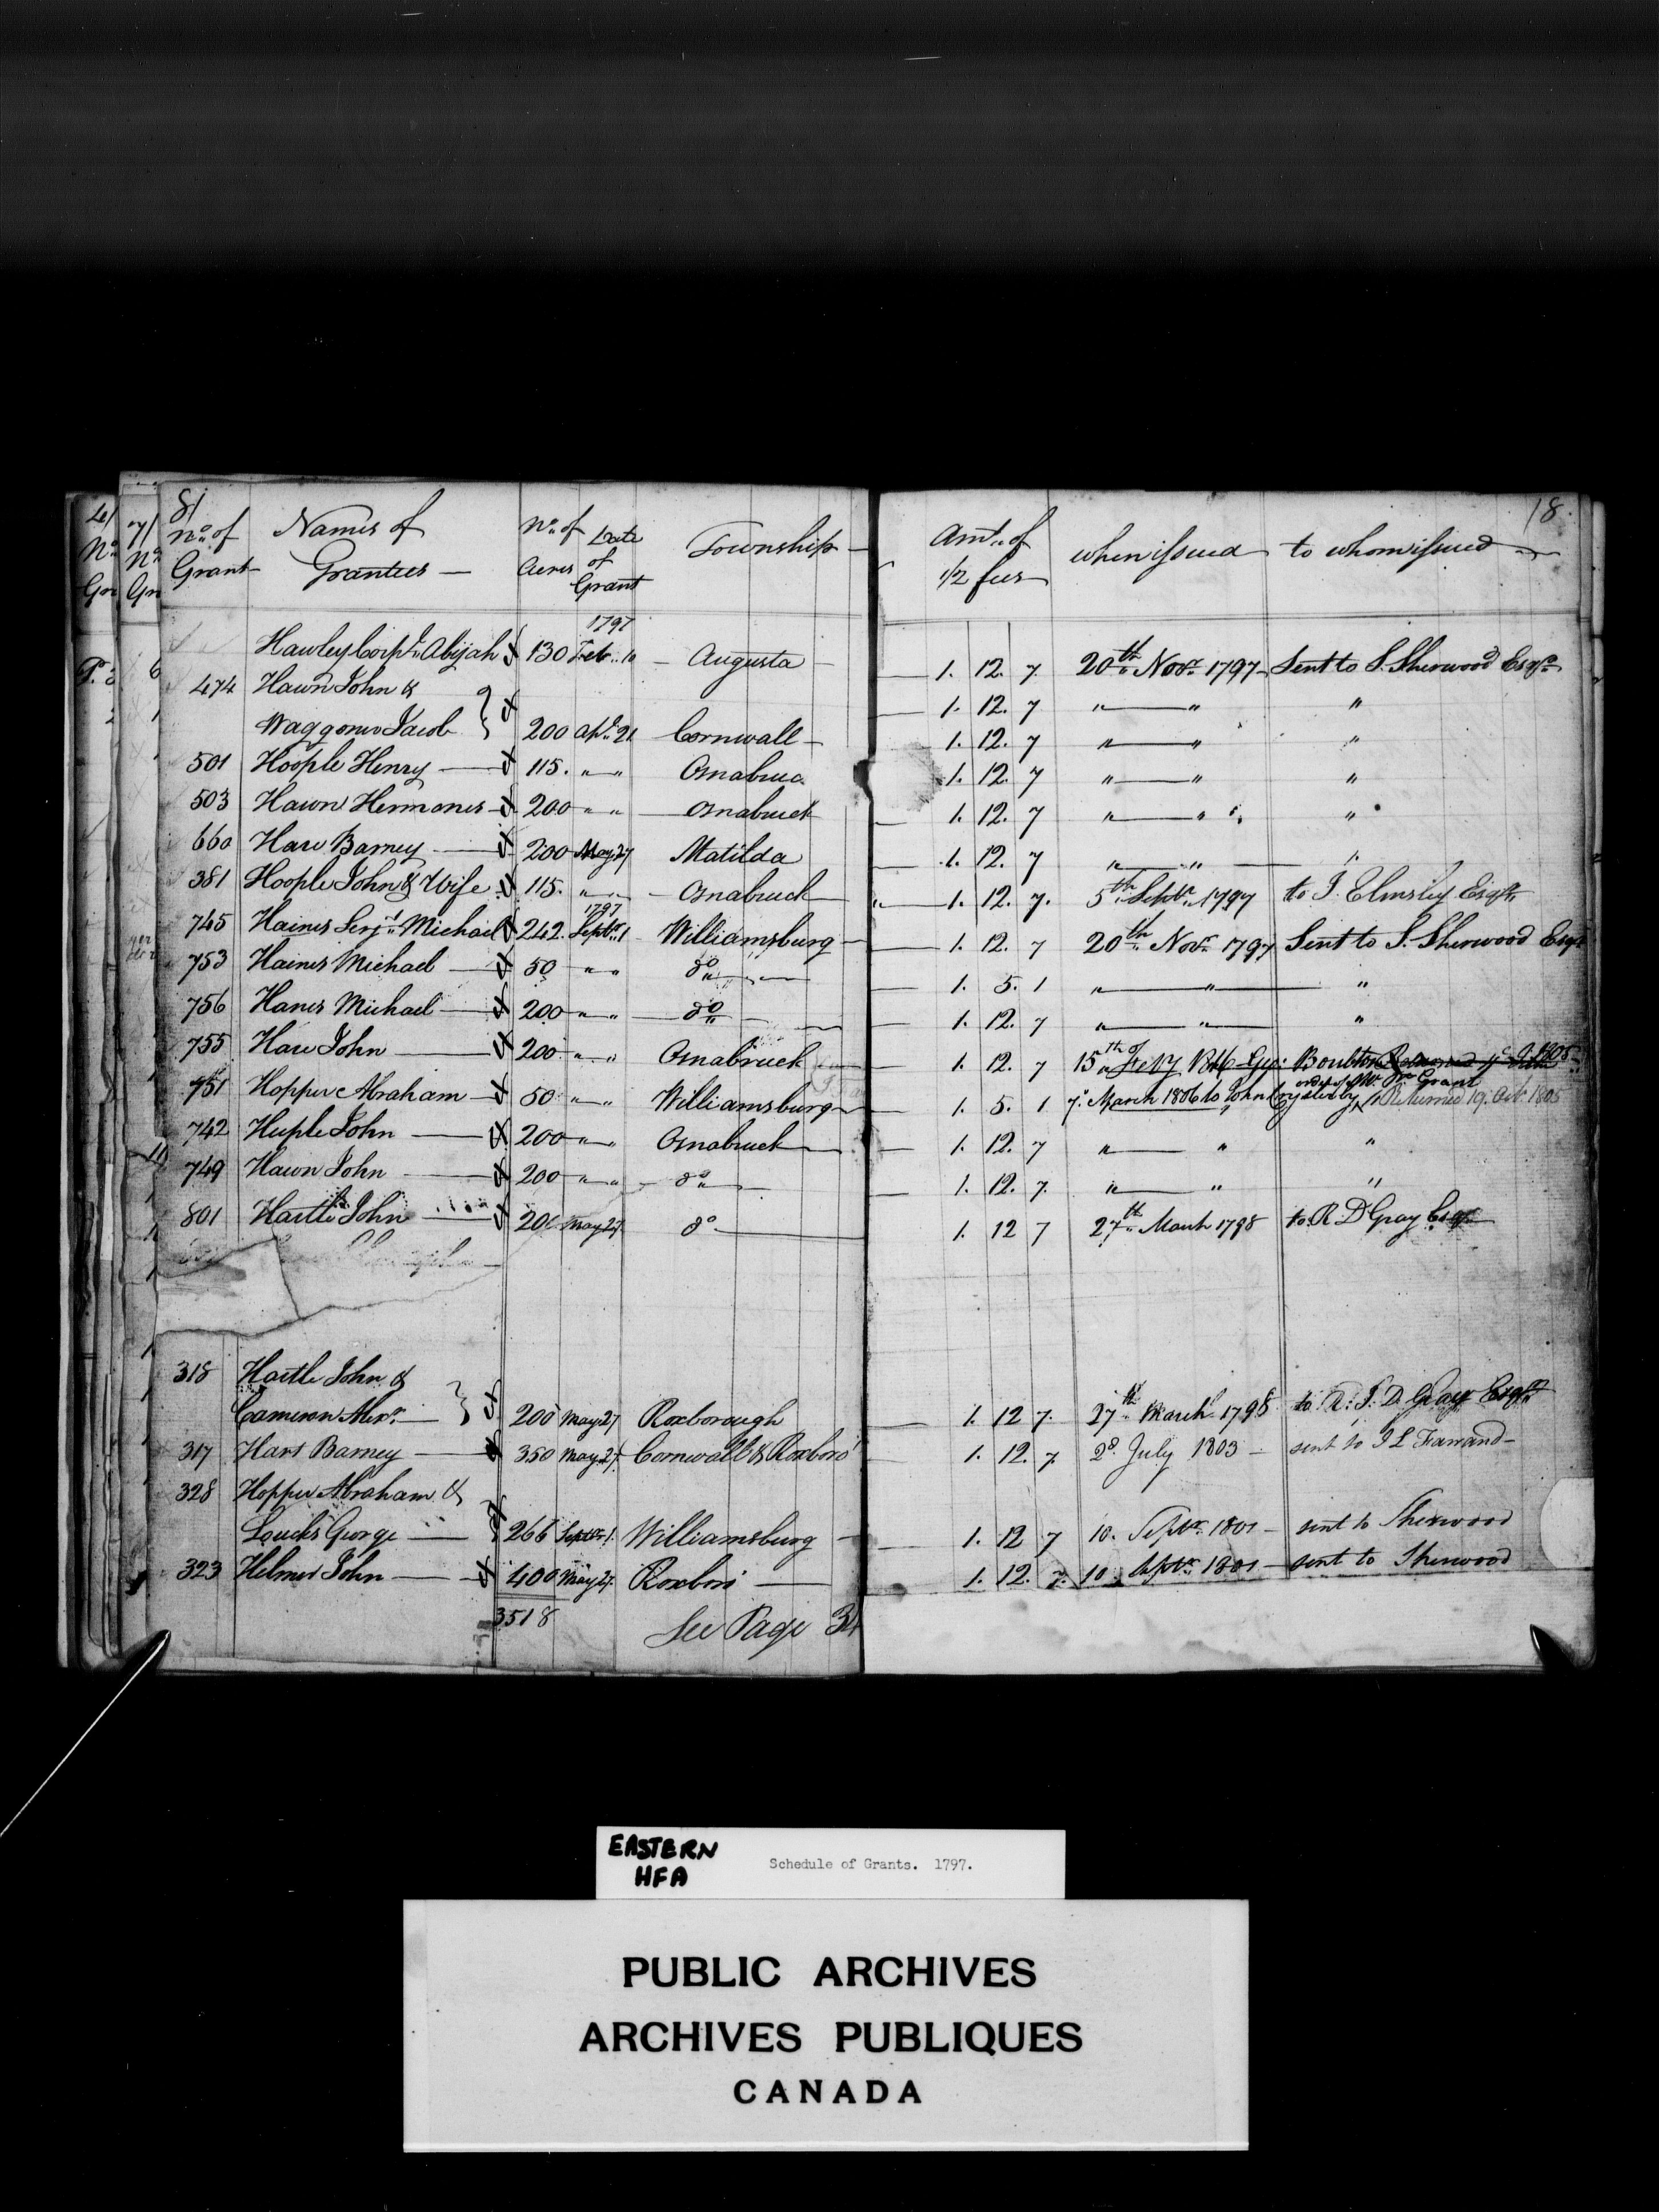 8/ 18.
No. of Grant Names of Grantees No. of Acres Date of Grant Township Amt. of 1/2 fees when issued to whom issued
1797
Hawley Corpl. Abijah 130 Feb. 10 Augusta 1. 12. 7. 20th Novr. 1797 Sent to S. Sherwood Esqr.
474 Hawn John & 1. 12. 7 " " "
Waggoner Jacob } 200 Apl. 21 Cornwall 1. 12. 7 " " "
501 Hoople Henry 115. " " Osnabruc 1. 12. 7 " " "
503 Hawn Hermones 200 " " Osnabruck 1. 12. 7 " " "
660 Hare Barney 200 May 27 Matilda 1. 12. 7 " " "
381 Hoople John & Wife 115. " " Osnabruck 1. 12. 7. 5th Septr. 1797 to J. Elmsley Esqr.
1797
745 Haines Serjt. Michael 242. Septr. 1 Williamsburg 1. 12. 7 20th Novr. 1797 Sent to S. Sherwood Esqr
753 Haines Michael 50 " " do 1. 5. 1 " " "
756 Hanes Michael 200 " " do 1. 12. 7 " " "
755 Hare John 200 " " Osnabruck 1. 12. 7 15th of Feby 1806 Boulton
order of Mr. Grant
751 Hopper Abraham 50 " " Williamsburg 1. 5. 1 7 March 1806 to John Crysler by Returned 19. Octr 1805
742 Huple John 200 " " Osnabruck 1. 12. 7 " " "
749 Hawn John 200 " " do 1. 12. 7. " " "
801 Hartle John 200 May 27 do 1. 12 7 27th March 1798 to R D Gray Esqr
318 Hartle John &
Cameron Alexr. } 200 May 27 Roxborough 1. 12 7. 27th March 1798 to R. I. D. Gray Esqr
317 Hart Barney 350 May 27. Cornwall & Roxboro' 1. 12. 7. 28. July 1803 sent to J L Farrand
328 Hopper Abraham &
Loucks George } 266 Septr. 1. Williamsburg 1. 12 7 10. Septr. 1801 sent to Sherwood
323 Helmer John 400 May 27. Roxboro' 1. 12. 7. 10 Septr. 1801 sent to Sherwood
3518 See Page 34
EASTERN
HFA
Schedule of Grants. 1797.
PUBLIC ARCHIVES
ARCHIVES PUBLIQUES
CANADA